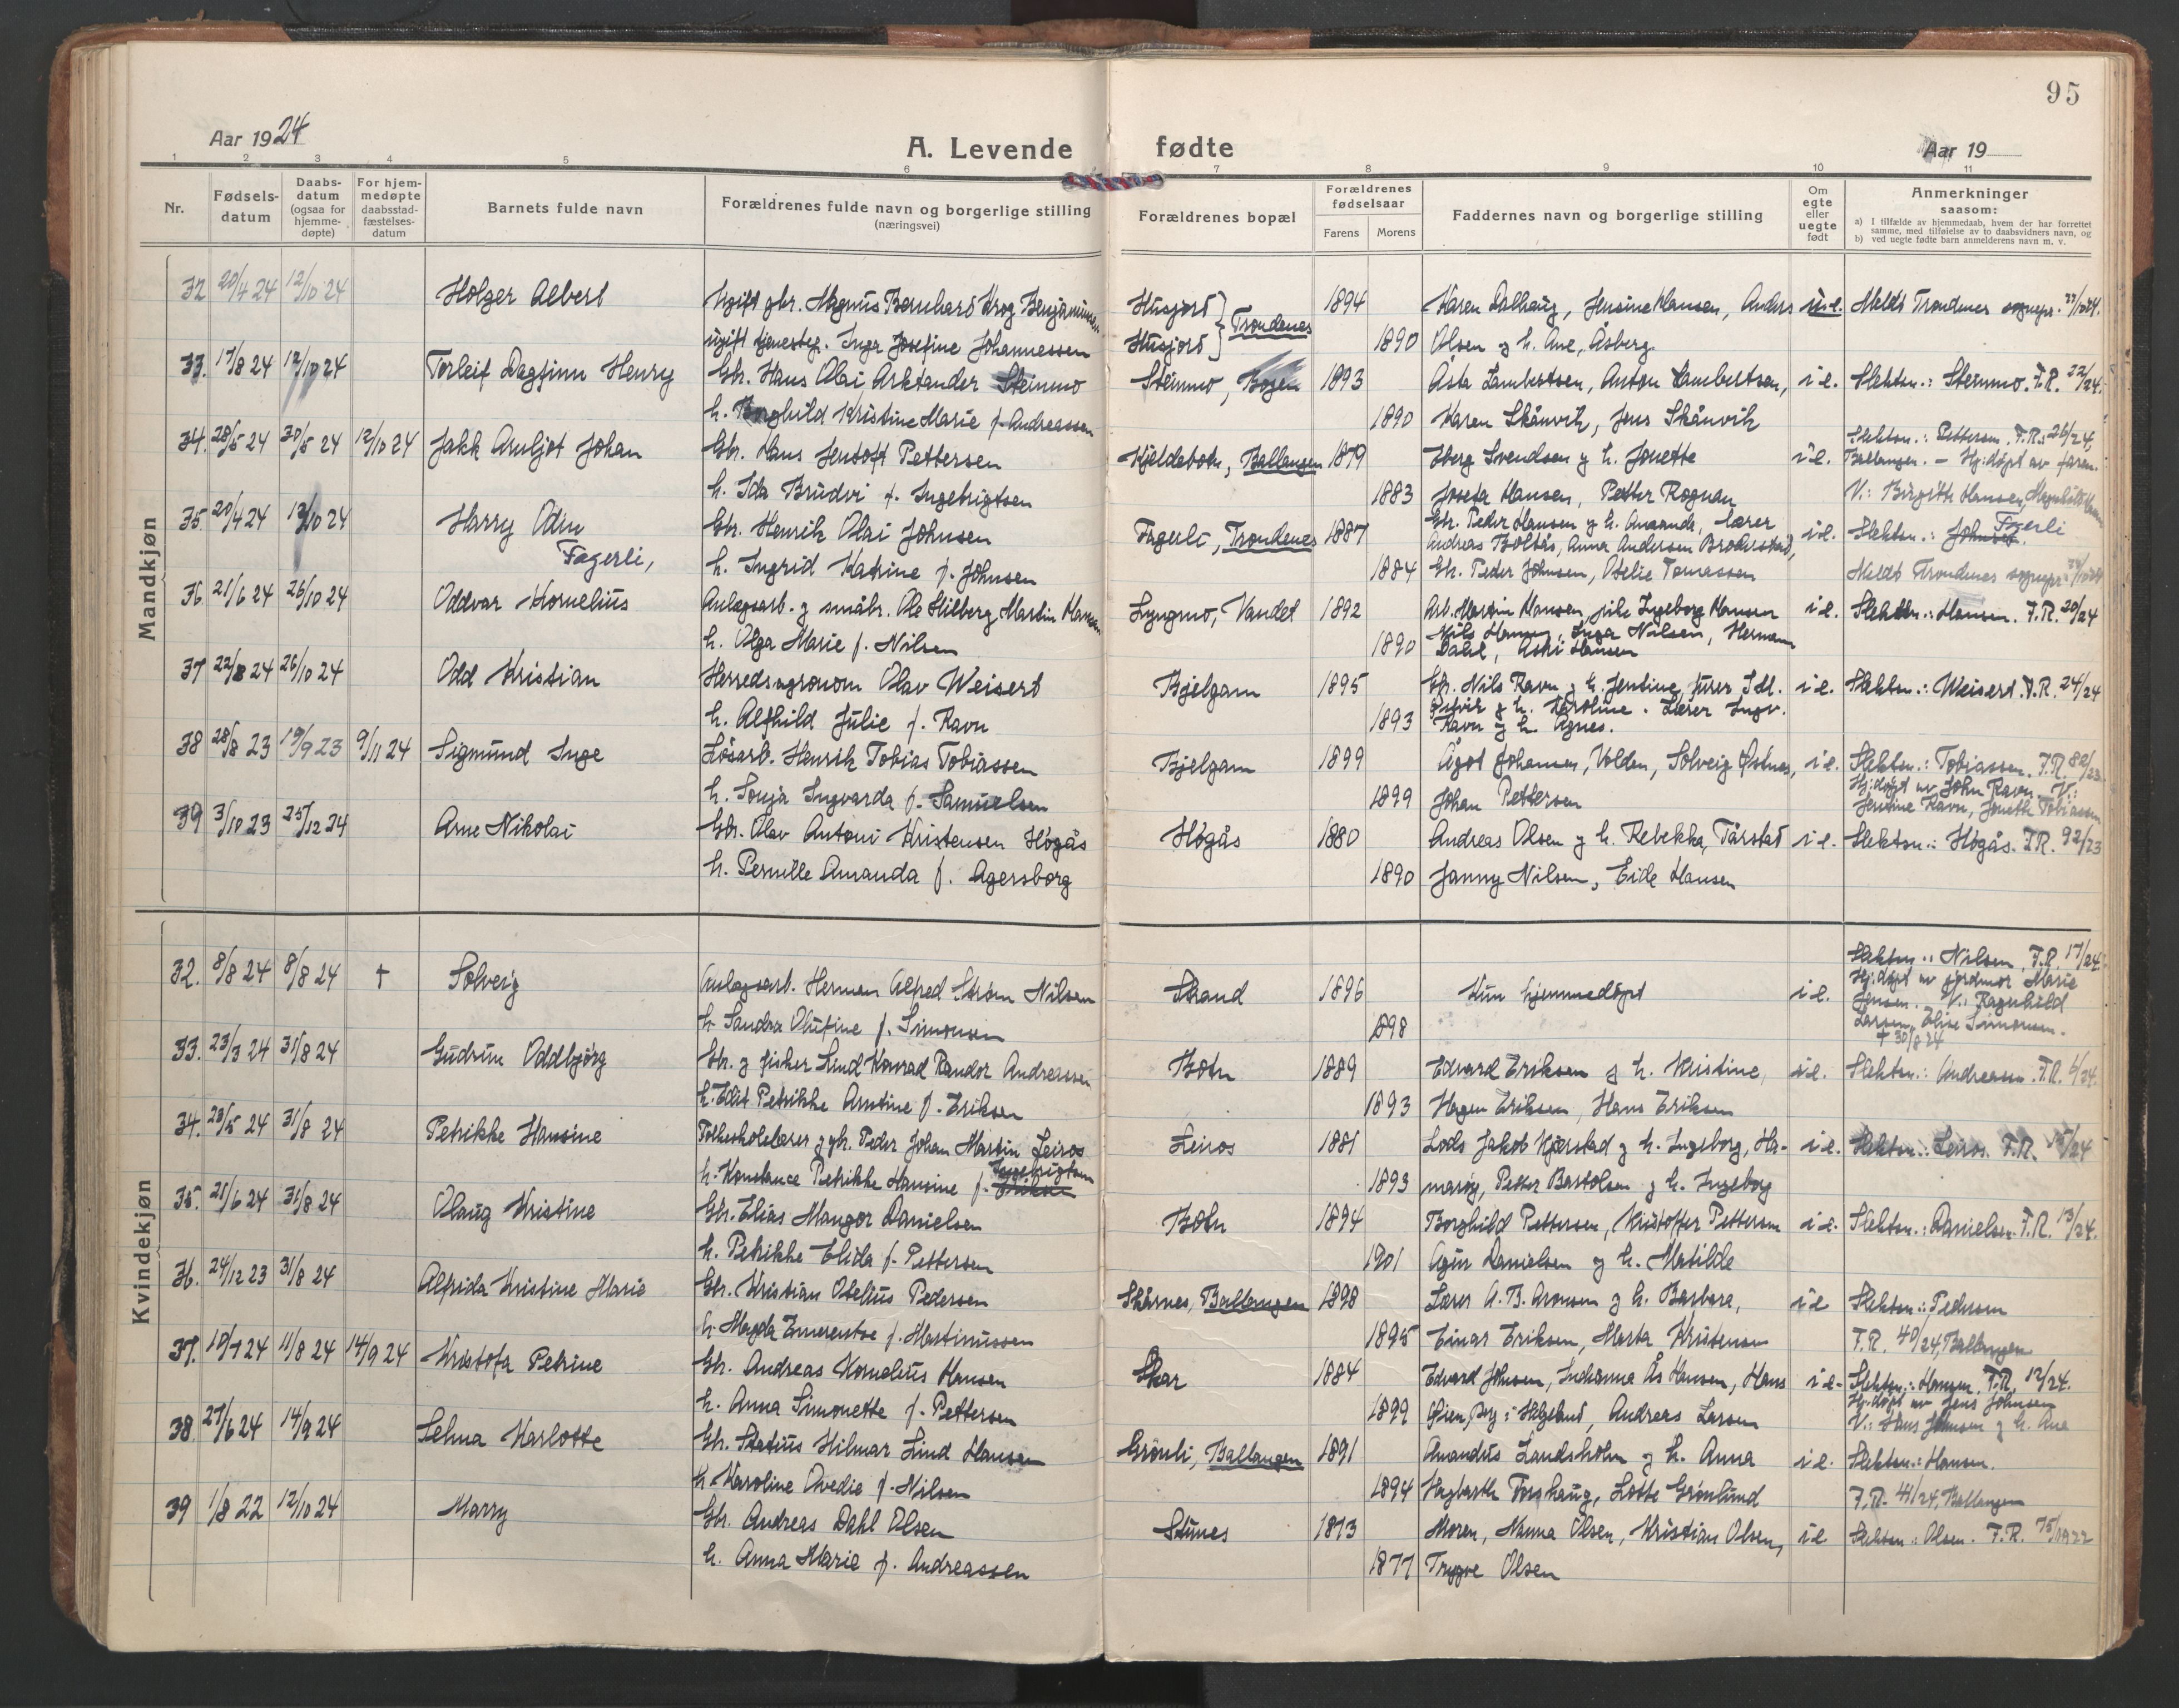 95
Aar 1924
A. Levende fødte
Aar 19
1 2 3 4 5 6 7 8 9 10 11
Nr.
Fødsels-
datum
Daabs-
datum
(ogsaa for
hjemme-
døpte)
For hjem-
medøpte
daabsstad-
fæstelses-
datum
Barnets fulde navn
Forældrenes fulde navn og borgerlige stilling
(næringsvei)
Forældrenes bopæl
Forældrenes
fødselsaar
Farens Morens
Faddernes navn og borgerlige stilling
Om
egte
eller
uegte
født
Anmerkninger
saasom:
a) I tilfælde av hjemmedaab, hvem der har forrettet
samme, med tilføielse av to daabsvidners navn, og
b) ved uegte fødte barn anmelderens navn m. v.
Mandkjøn
32 20/4 24 12/10 24 Holger Albert Ugift gbr. Magnus Bernhard Krog Benjaminsen Husjord 1894 Karen Dalhaug, Jensine Hansen, Anders u.e. Meldt Trondenes sognepr.
ugift tjenestep. Inga Josefine Johannessen Husjord } Trondenes 1890 Olsen og h. Ane, Åsberg
33. 17/8 24 12/10 24 Torleif Dagfinn Henry Gbr. Hans Olai Arktander Steinmo Steinmo, Bogen 1893 Åsta Lambertsen, Anton Lambertsen, i e. Slektsn.: Steinmo. F.R. 32/24.
h. Borghild Kristine Marie f. Andreassen 1890 Karen Skånvik, Jens Skånvik
34. 28/5 24 30/5 24 12/10 24 Jakk Arnljot Johan Gbr. Hans Jentoft Pettersen Kjeldebotn, Ballangen 1879 Iberg Svendsen og h. Jonette i e. Slektsn.: Pettersen. F.R.: 26/24,
Ballangen. – Hj:døpt av faren.
h. Ida Brudvi f. Ingebrigtsen 1883 Josefa Hansen, Petter Rognan V.: Birgitte Hansen,
35. 20/4 24 12/10 24 Harry Odin Gbr. Henrik Olai Johnsen Fagerli, Trondenes 1887 Gbr. Peder Hansen og h. Amanda, lærer
Andreas Boltås, Anna Andersen i e. Slektsn.: Johnsen. Fagerli
Fagerli, h. Ingrid Katrine f. Johnsen 1884 Gbr. Peder Johnsen, Otelie Tomassen Meldt Trondenes sognepr.
36 21/6 24 26/10 24 Oddvar Kornelius Anlægsarb. og småbr. Ole Hilberg Martin Hansen Lyngmo, Vandet 1892 Arb. Martin Hansen, pike Ingeborg Hansen i e. Slektsn.: Hansen. F.R. 20/24
h. Olga Marie f. Nilsen 1890 Nils Hansen, Inga Nilsen, Herman
Dahl, Hansen
37 22/8 24 26/10 24 Odd Kristian Herredsagronom Olav Weisert Bjelgam 1895 Gbr. Nils Ravn og h. Jentine, i e. Slektsn.: Weisert. F.R. 24/24
h. Alfhild Julie f. Ravn 1893 og h. Karoline. Lærer Ingv.
Ravn og h. Agnes.
38 28/8 23 19/9 23 9/11 24 Sigmund Inge Løsarb. Henrik Tobias Tobiassen Bjelgam 1899 Ågot Johansen, Volden, Solveig Østnes, i e. Slektsn.: Tobiassen. F.R. 82/23
h. Sonja Ingvarda f. Samuelsen 1899 Johan Pettersen Hj:døpt av John Ravn. V.:
Jentine Ravn, Tobiassen
39 3/10 23 25/12 24 Arne Nikolai Gbr. Olav Antoni Kristensen Høgås Høgås 1880 Andreas Olsen og h. Rebekka, Tårstad i e. Slektsn.: Høgås. F.R. 92/23
h. Pernille Amanda f. Agersborg 1890 Janny Nilsen, Eide Hansen
Kvindekjøn
32. 8/8 24 8/8 24 † Solveig Anlægsarb. Herman Alfred Strøm Nilsen Strand 1896 Kun hjemmedøpt i e. Slektsn.: Nilsen, F.R. 17/24.
Hj:døpt av jordmor Marie
Jensen. V.: Ragnhild
h. Sandra Olufine f. Simonsen 1898 Larsen, Elise Simonsen.
† 30/8 24
33. 23/3 24 31/8 24 Gudrun Oddbjørg Gbr. og fisker Lind Konrad Randor Andreassen Botn 1889 Edvard Eriksen og h. Kristine, i e. Slektsn.: Andreassen. F.R. 6/24.
h. Edit Petrikke Arntine f. Eriksen 1893 Hagen Eriksen, Hans Eriksen
34. 23/5 24 31/8 24 Petrikke Hansine Folkeskolelærer og gbr. Peder Johan Martin Leiros Leiros 1881 Lods Jakob Kjærstad og h. Ingeborg, Ha- i e. Slektsn.: Leiros. F.R. 15/24
h. Konstance Petrikke Hansine f. Ingebrigtsen 1893 marøy, Peder Bertolsen og h. Ingeborg
35. 21/6 24 31/8 24 Olaug Kristine Gbr. Elias Mangor Danielsen Botn 1894 Borghild Pettersen, Kristoffer Pettersen i e. Slektsn.: Danielsen. F.R. 13/24.
h. Petrikke Elida f. Pettersen 1901 Agin Danielsen og h. Matilde
36. 24/12 23 31/8 24 Alfrida Kristine Marie Gbr. Kristian Otelius Pedersen Skårnes, Ballangen 1898 Lærer A. B. Aronsen og h. Barbara, i e Slektsn.: Pedersen
h. Magda Emerentse f. Martinussen 1895 Einar Eriksen, Marta Kristensen F.R. 40/24, Ballangen
37. 10/7 24 11/8 24 14/9 24 Kristofa Petrine Gbr. Andreas Kornelius Hansen Skar 1884 Edvard Johnsen, Indianna Ås Hansen, Hans i e. Slektsn.: Hansen. F.R. 12/24.
Hj:døpt av Jens Johnsen
h. Anna Simonette f. Pettersen 1899 Andreas Larsen V.: Hans Johnsen og h. Ane
38 27/6 24 14/9 24 Selma Karlotte Gbr. Statius Hilmar Lind Hansen Grønli, Ballangen 1891 Amandus Landsholm og h. Anna i e. Slektsn.: Hansen.
h. Karoline Ovedie f. Nilsen 1894 Hagbarth Forshaug, Lotte Grønlund F.R. 41/24, Ballangen
39 1/8 22 12/10 24 Marry Gbr. Andreas Dahl Olsen Stunes 1873 Moren, Nanna Olsen, Kristian Olsen, i e. Slektsn.: Olsen. F.R. 75/1922
h. Anna Marie f. Andreassen 1877 Trygve Olsen